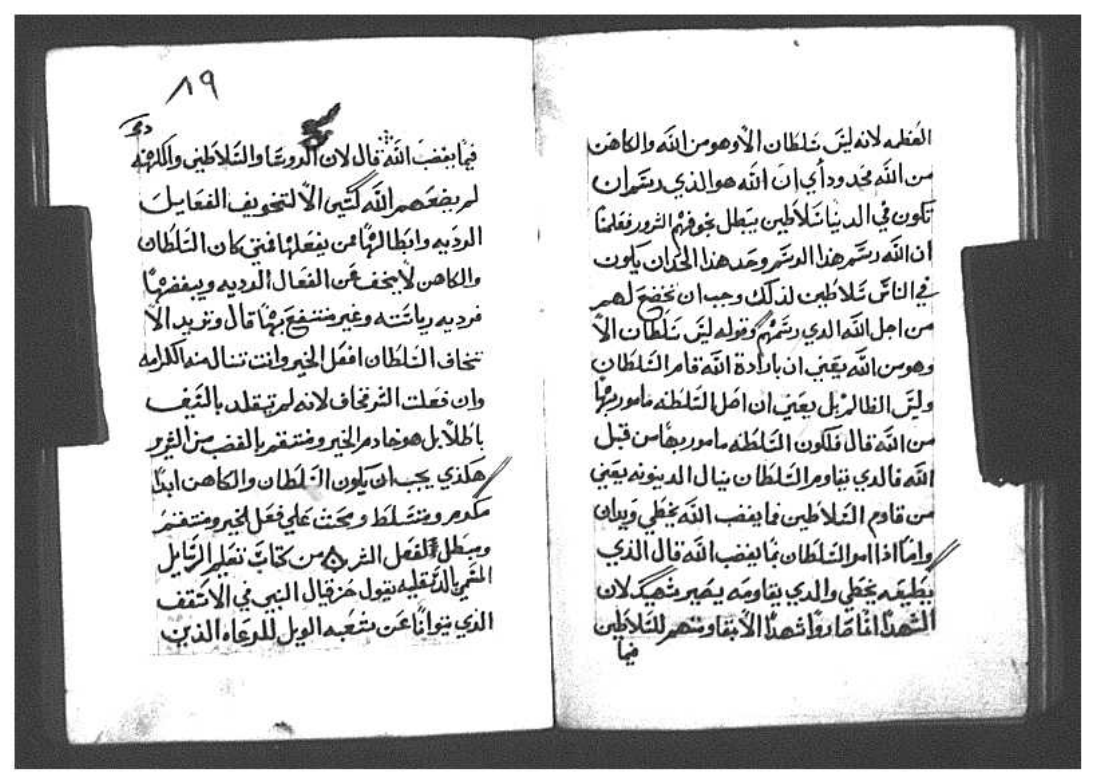 العظمه لانه ليس سلطان الا وهو من الله والكاهن
من الله محدود أي ان الله هو الذي رسم ان
تكون في الدنيا سلاطين يبطل بخوفهم الشرور فعلمنا
ان الله رسم هذا الرسم وحد هذا الحد ان يكون
في الناس سلاطين لذلك وجب ان نخضع لهم
من اجل الله الدي رسمهم وقوله ليس سلطان الا
وهو من الله يعني ان بارادة الله قام السلطان
وليس الظالم بل يعني ان اصل السلطنه مامور بها
من الله قال فلكون السلطنه مامور بها من قبل
الله فالدي يقاوم السلطان ينال الدينونه يعني
من قاوم السلاطين فيما يغضب الله يخطي ويدان
واما اذا امر السلطان بما يغضب الله قال الذي
يطيعه يخطي والدي يقاومه يصير شهيد لان
الشهدا انما صاروا شهدا الا بمقاومتهم للسلاطين
فيما
٨٩
فيما يغضب الله قال لان الروسا والسلاطين والكهنه
لم يضعهم الله كشي الا لتخويف الفعايل
الرديه وابطالها ممن يفعلها فمتي كان السلطان
والكاهن لا يخف عن الفعال الرديه ويبغضها
فرديه رياسته وغير منتفع بها قال وتريد الا
تخاف السلطان افعل الخير وانت تنال منه الكرامه
وان فعلت الشر تخاف لانه لم يتقلد بالسيف
باطلا بل هو خادم الخير ومنتقم بالغضب من الشرير
هكذي يجب ان يكون السلطان والكاهن ابدا
مكرم ومتسلط ويحث علي فعل الخير ومنتقم
ومبطل لفعل الشر من كتاب تعليم الرسايل
المسمي بالدسقليه يقول حزقيال النبي في الاسقف
الذي يتوانا عن شعبه الويل للرعاه الذين